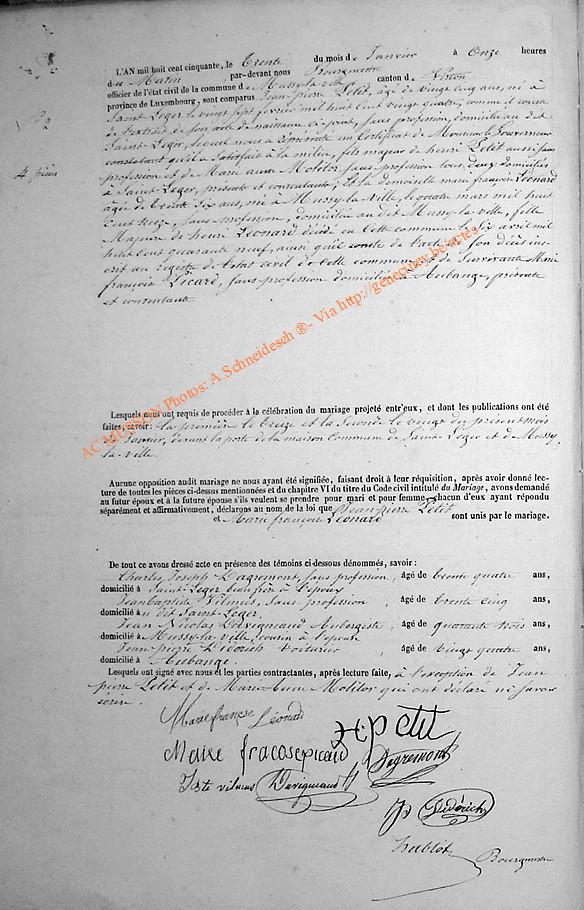 L'AN mil huit cent cinquante, le trente du mois de Janvier à Onze heures
du Matin, par-devant nous Bourgmestre
officier de l'état civil de la commune de Mussy-la-ville canton de Virton
province de Luxembourg, sont comparus Jean pierre Petit, âgé de vingt cinq ans, né à
Saint Leger le vingt sept février mil huit Cent vingt quatre, comme il conste
de l'extrait de son acte de naissance ci-joint, sans profession, domicilié au dit
Saint-Leger, lequel nous a représenté un Certificat de Monsieur le Gouverneur
constatant qu'il a satisfait à la milice, fils majeur de henri Petit aussi sans
profession et de Marie anne Molitor sans profession tous deux domiciliés
à Saint-Leger, présents et consentants; Et la demoiselle marie françoise Léonard
âgée de trente six ans, née à Mussy-la-Ville, le quatre mars mil huit
Cent treize, sans profession, domiciliée au dit Mussy-la-ville, fille
Majeure de henri Léonard décédé en Cette commune le dix avril mil
huit Cent quarante neuf, ainsi qu'il conste de l'acte de son décès ins-
crit au registre de l'état civil de cette commune, et de Marie
françoise Picard, sans profession domiciliée à Aubange, présente
et consentante
92
4 pièces
Lesquels nous ont requis de procéder à la célébration du mariage projeté entr'eux, et dont les publications ont été
faites, savoir: la première le treize et la Seconde le vingt du présent mois
de Janvier, devant la porte de la maison Commune de Saint-Leger et de Mussy-
la-ville.
Aucune opposition audit mariage ne nous ayant été signifiée, faisant droit à leur réquisition, après avoir donné lec-
ture de toutes les pièces ci-dessus mentionnées et du chapitre VI du titre du Code civil intitulé du Mariage, avons demandé
au futur époux et à la future épouse s'ils veulent se prendre pour mari et pour femme, chacun d'eux ayant répondu
séparément et affirmativement, déclarons au nom de la loi que Jean pierre Petit
et Marie françoise Léonard sont unis par le mariage.
De tout ce avons dressé acte en présence des témoins ci-dessous dénommés, savoir:
Charles Joseph Dagremont, sans profession, âgé de trente quatre ans,
domicilié à Saint-Leger beau frère à l'époux
Jean baptiste Vilmus, Sans profession, âgé de trente cinq ans,
domicilié au dit Saint Leger
Jean Nicolas Aubergiste, âgé de quarante trois ans,
domicilié à Mussy-la-ville, cousin à l'époux
Jean-pierre Didérich voiturier, âgé de vingt quatre ans,
domicilié à Aubange.
Lesquels ont signé avec nous et les parties contractantes, après lecture faite, à l'exception de Jean
pierre Petit et de Marie Anne Molitor qui ont déclaré ne savoir
écrire.
Marie françse Léonard
petit
Marie fracose picard
Dagremont
Jste vilmus
Didérich
Bourgmestre
AC MUSSON Photos: A.Schneidesch ®- Via http://geneguxy.be/actes